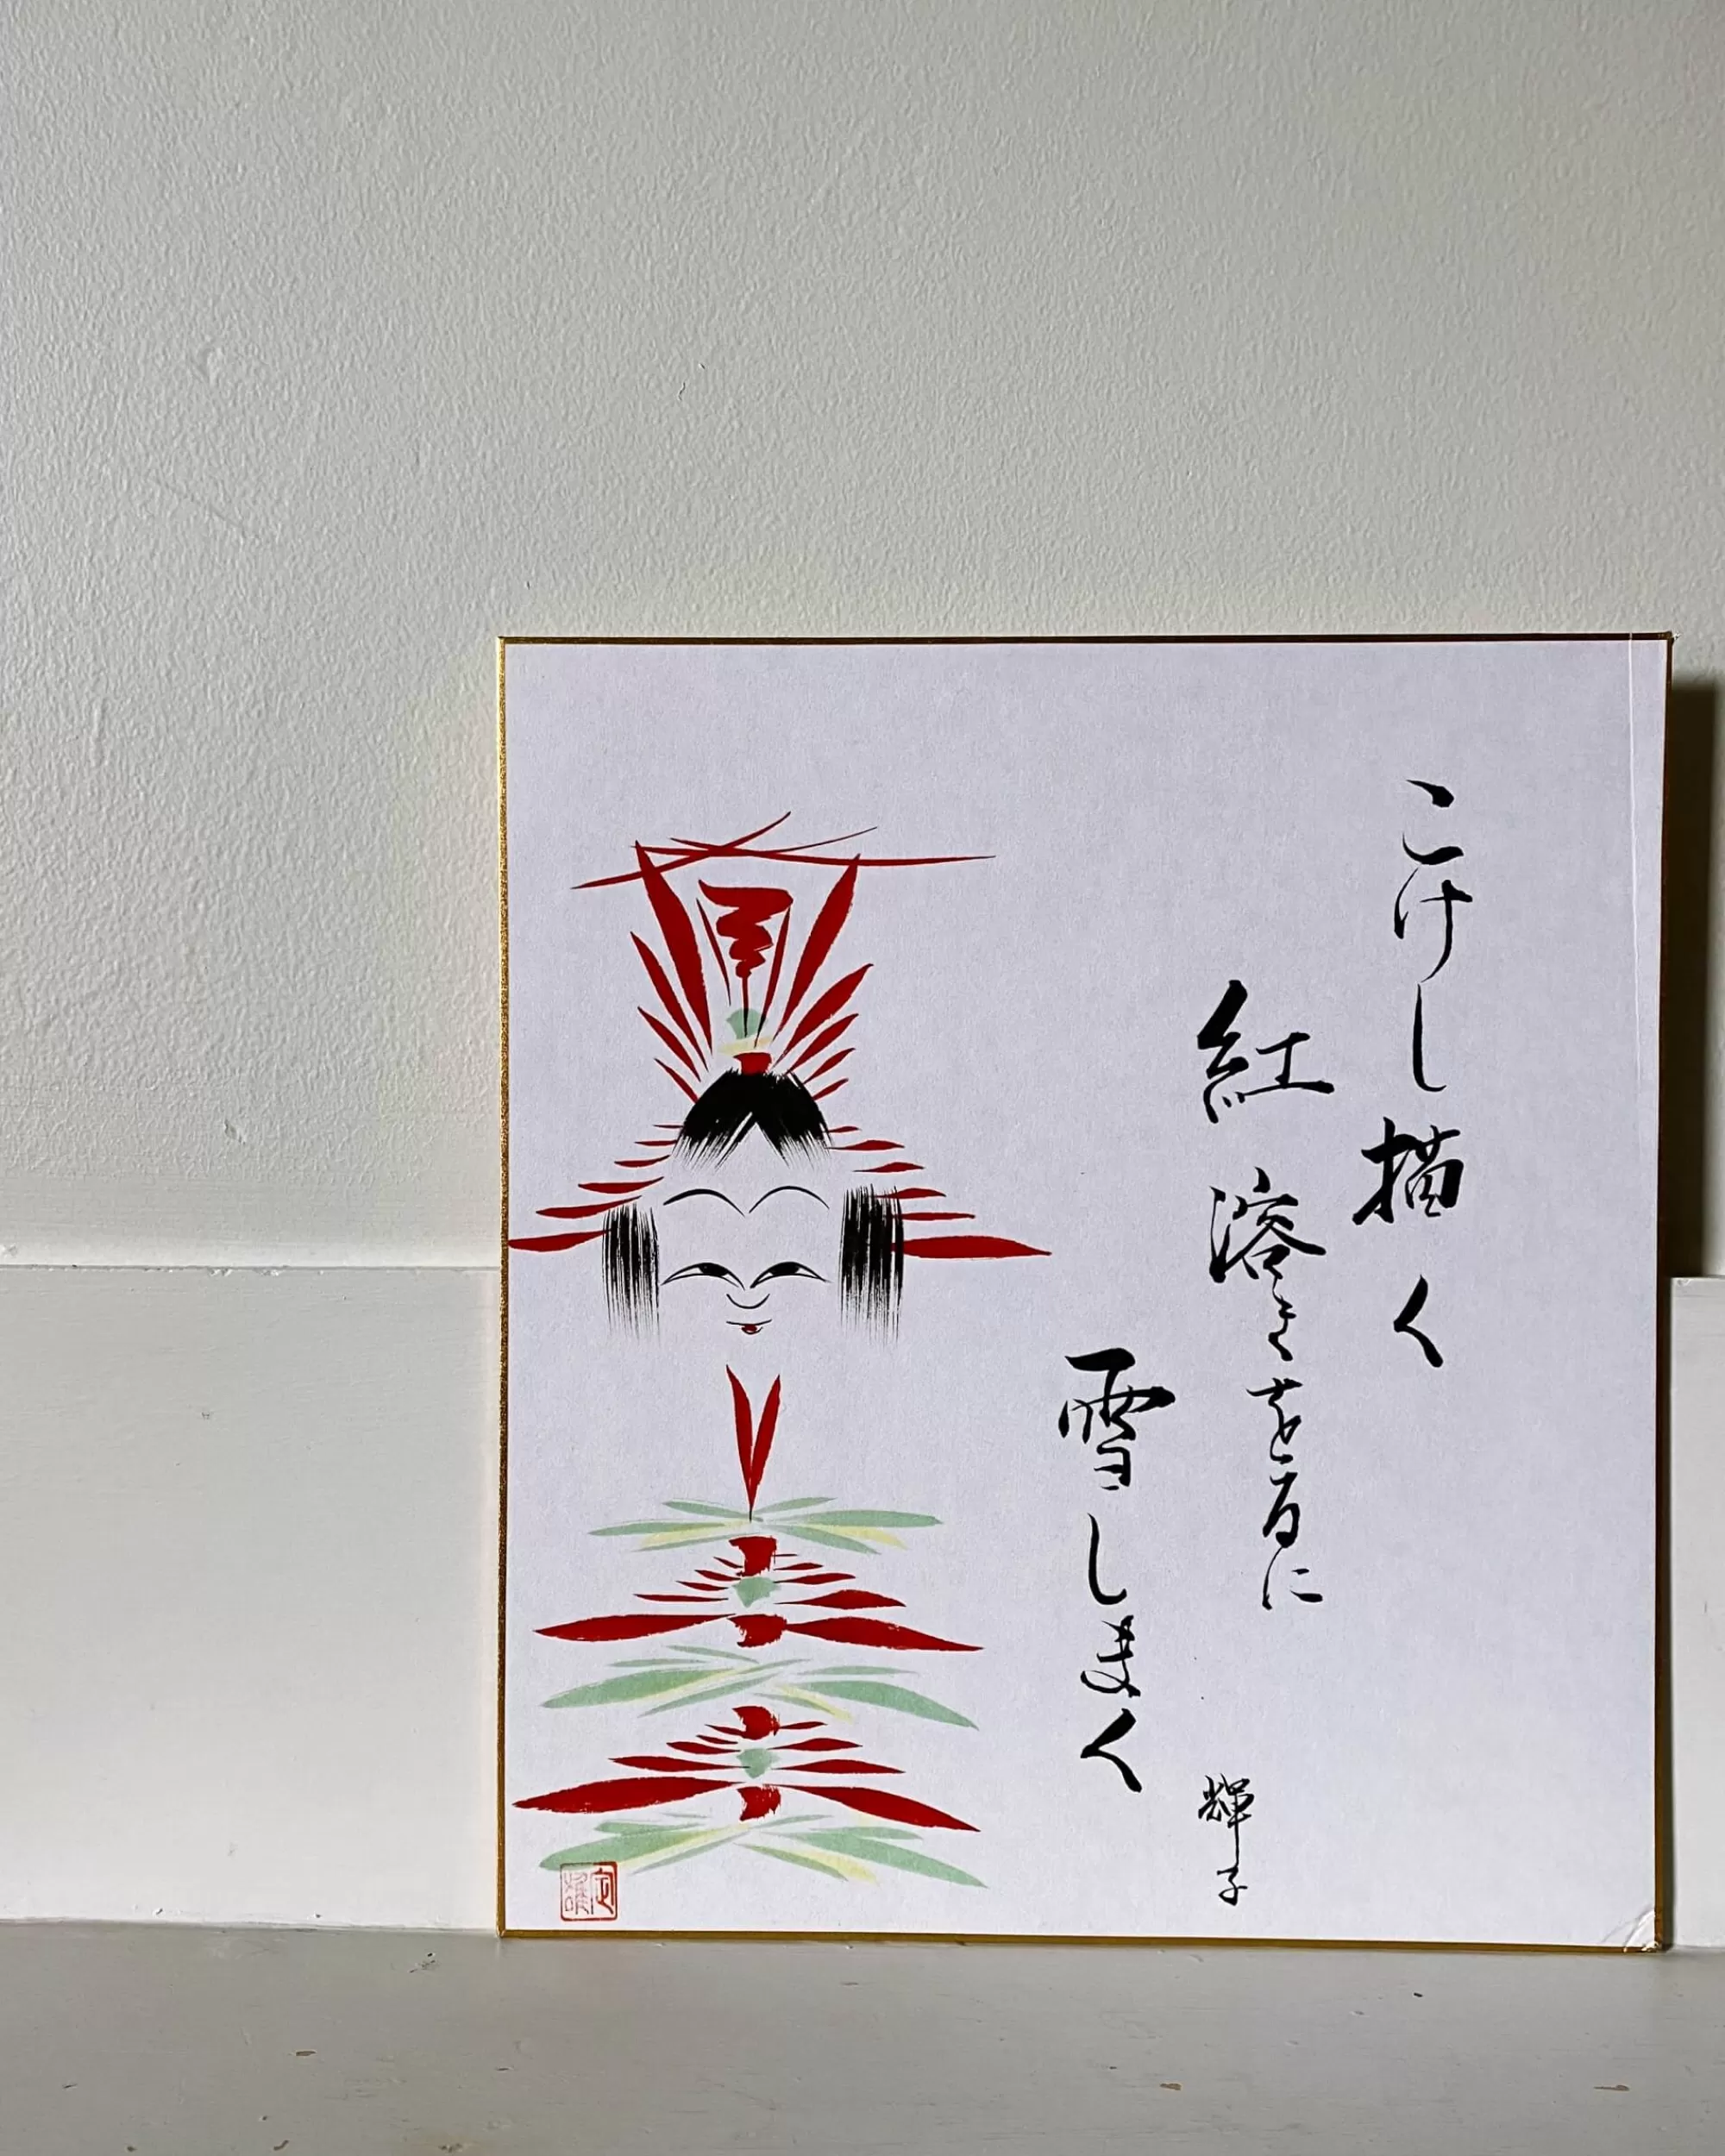 こけし描く
紅溶きをるに
雪しまく
輝子